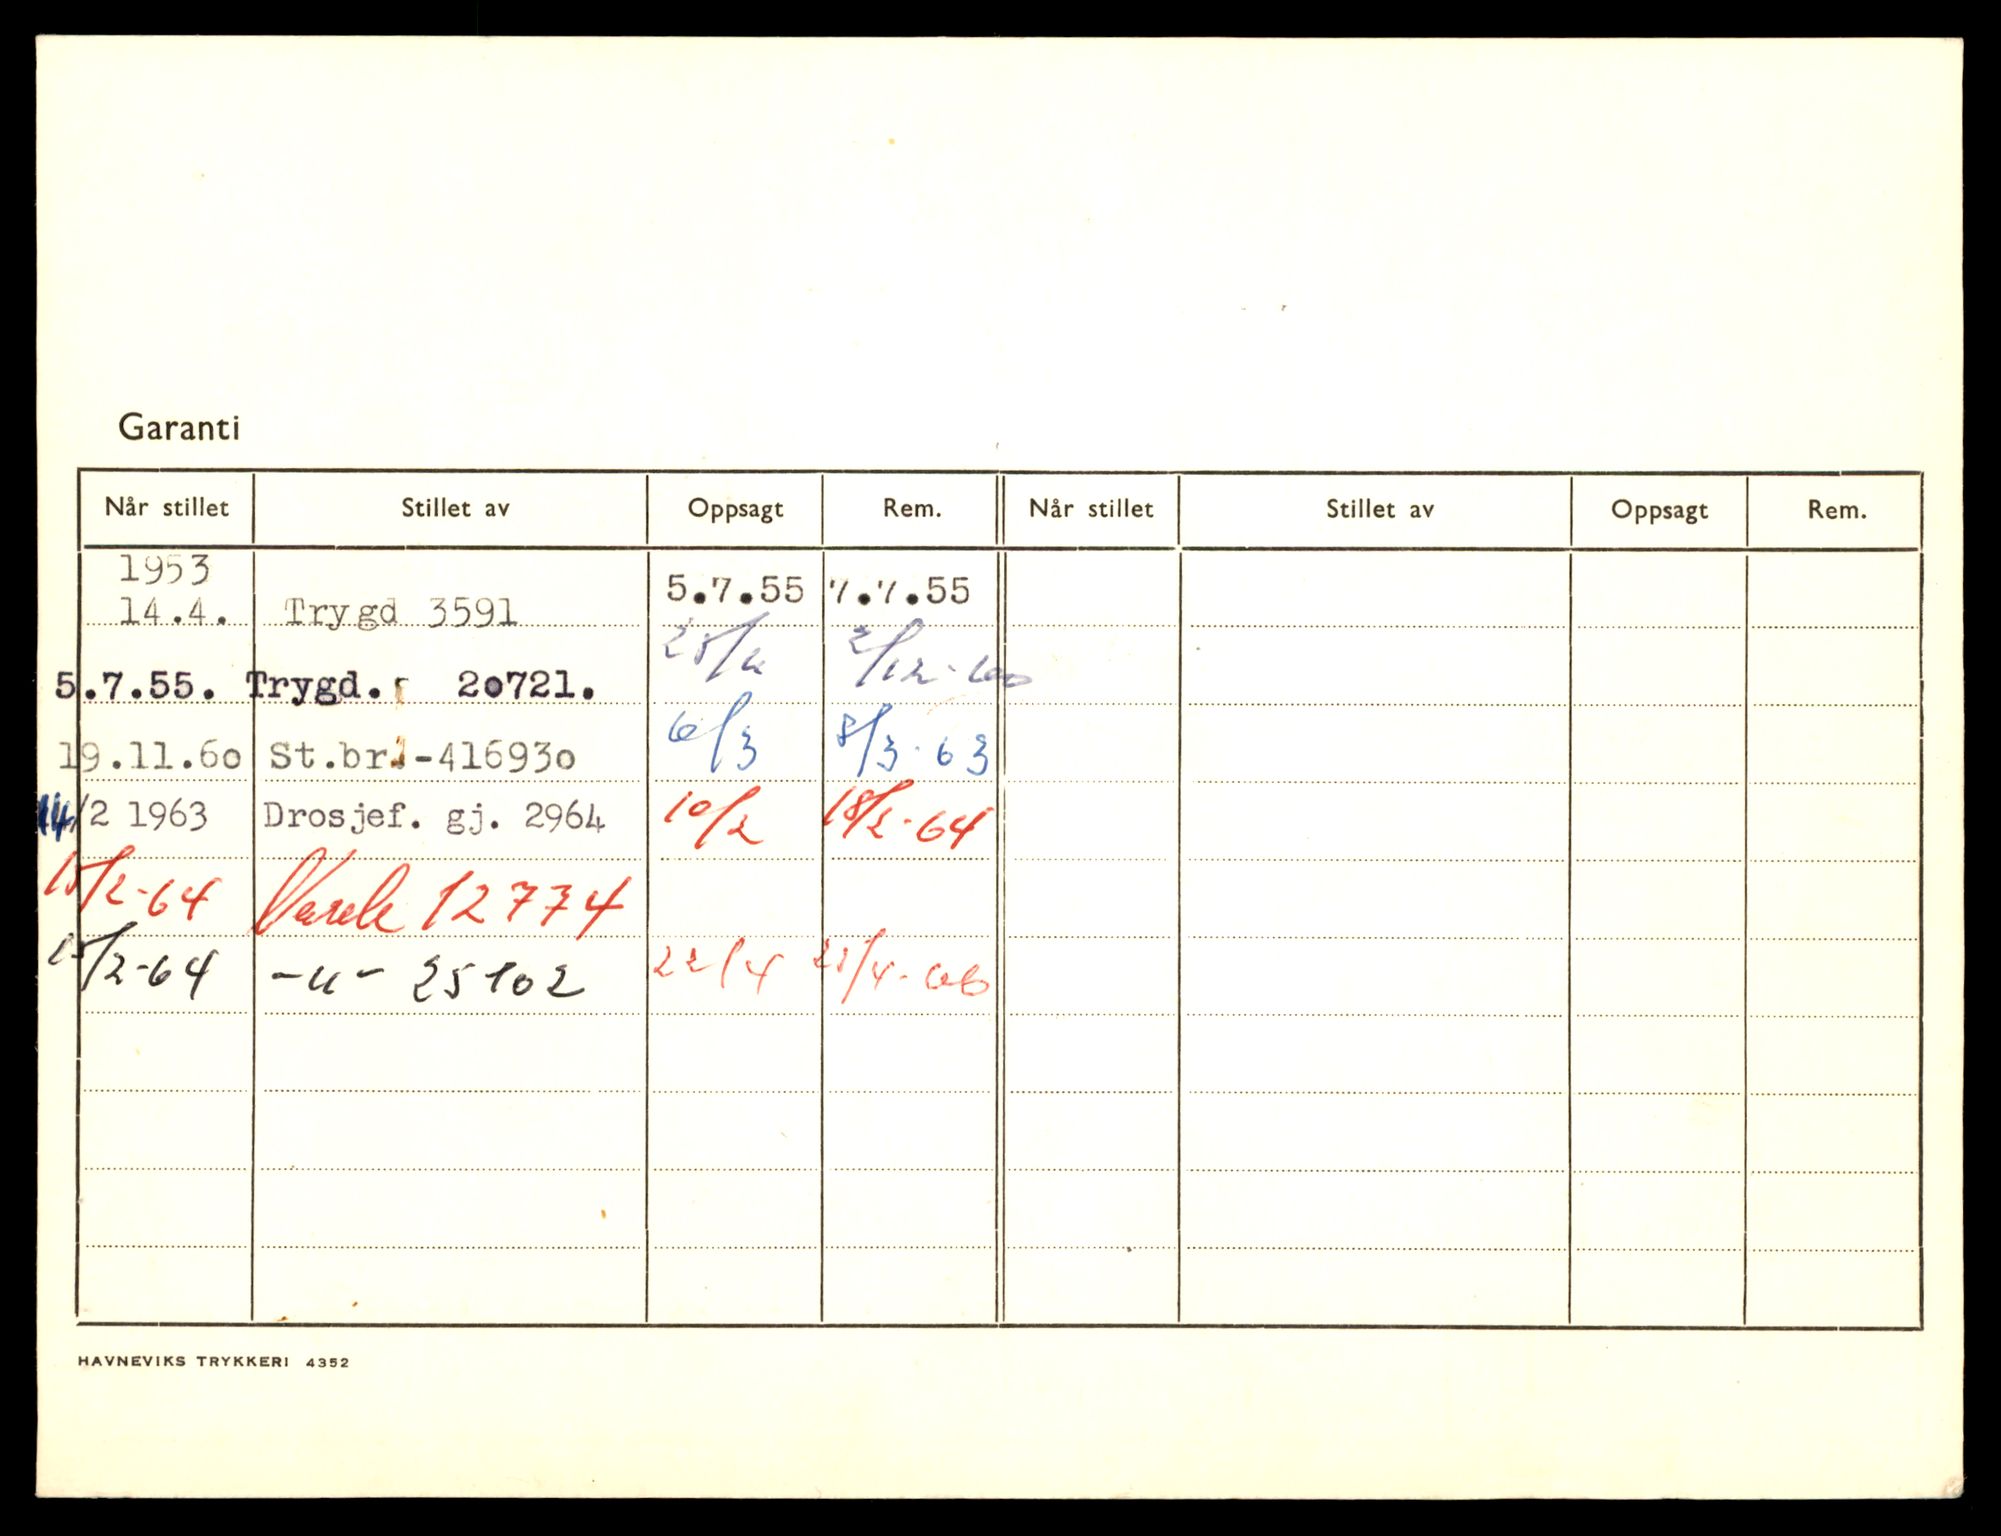 Garanti
Når stillet Stillet av Oppsagt Rem. Når stillet Stillet av Oppsagt Rem.
1953
14.4. Trygd 3591 5.7.55 7.7.55
5.7.55. Trygd. 20721. 2/12-60
19.11.60 St.br.-416930 6/3 8/3-63
14/2 1963 Drosjef. gj. 2964 10/2 18/2-64
15/2-64 12774
15/2-64 -"- 25102 22/4 22/4-66
HAVNEVIKS TRYKKERI 4352